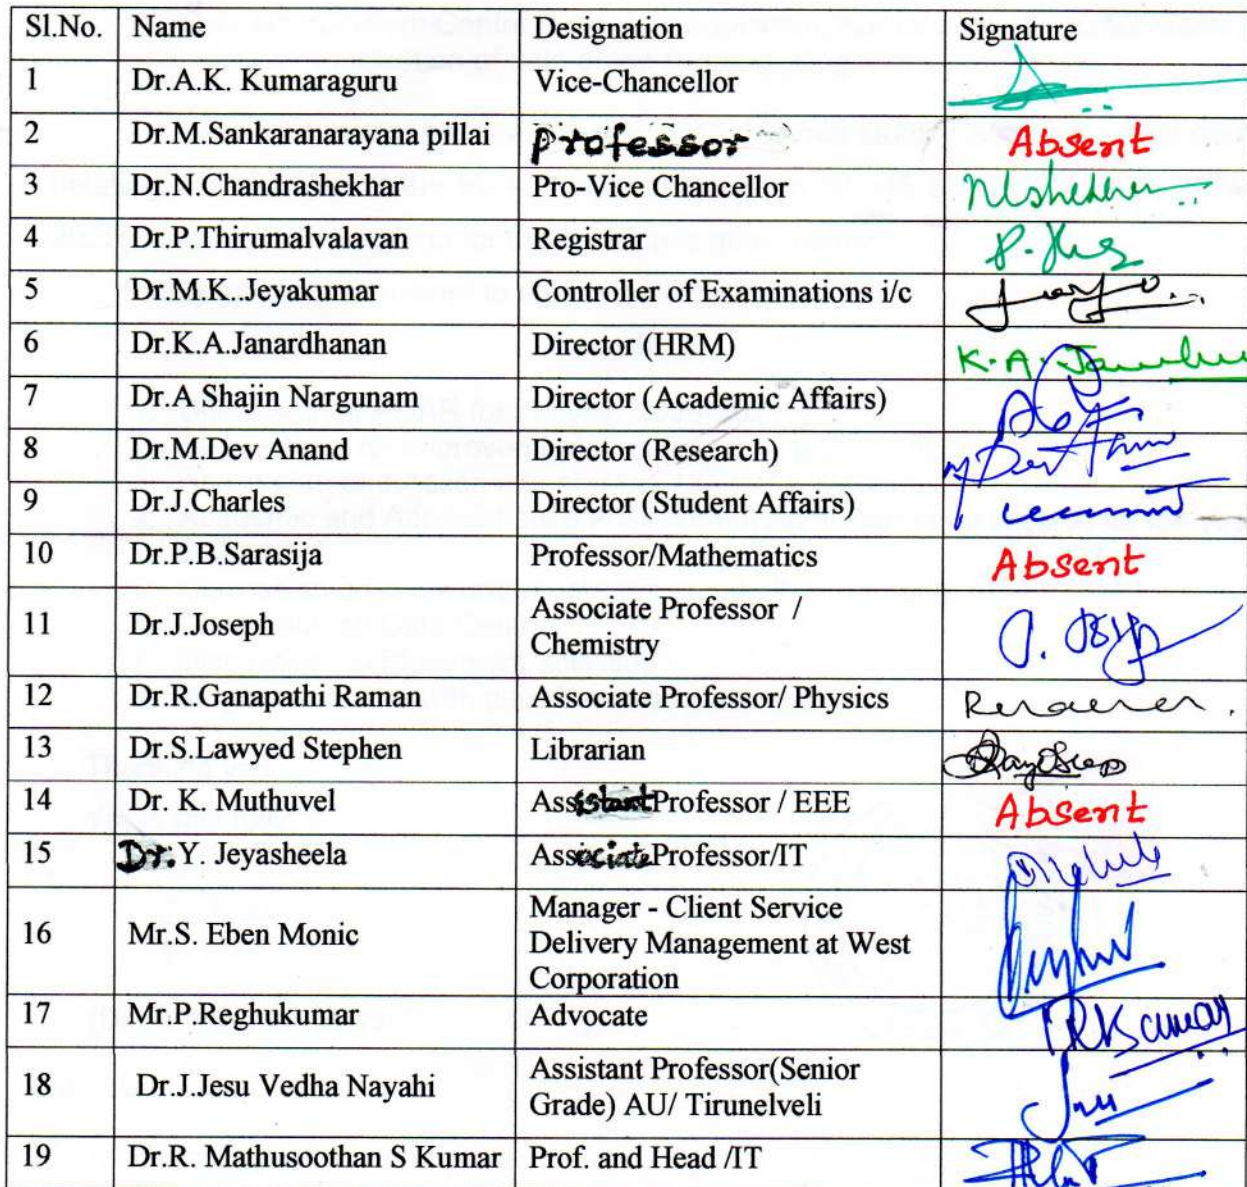 Sl.No. Name Designation Signature
1 Dr.A.K. Kumaraguru Vice-Chancellor
2 Dr.M.Sankaranarayana pillai Professor Absent
3 Dr.N.Chandrashekhar Pro-Vice Chancellor
4 Dr.P.Thirumalvalavan Registrar
5 Dr.M.K..Jeyakumar Controller of Examinations i/c
6 Dr.K.A.Janardhanan Director (HRM) K.A.
7 Dr.A Shajin Nargunam Director (Academic Affairs)
8 Dr.M.Dev Anand Director (Research)
9 Dr.J.Charles Director (Student Affairs)
10 Dr.P.B.Sarasija Professor/Mathematics Absent
11 Dr.J.Joseph Associate Professor /
Chemistry
12 Dr.R.Ganapathi Raman Associate Professor/ Physics
13 Dr.S.Lawyed Stephen Librarian
14 Dr. K. Muthuvel Assistant Professor / EEE Absent
15 Dr. Y. Jeyasheela Associate Professor/IT
16 Mr.S. Eben Monic Manager - Client Service
Delivery Management at West
Corporation
17 Mr.P.Reghukumar Advocate
18 Dr.J.Jesu Vedha Nayahi Assistant Professor(Senior
Grade) AU/ Tirunelveli
19 Dr.R. Mathusoothan S Kumar Prof. and Head /IT